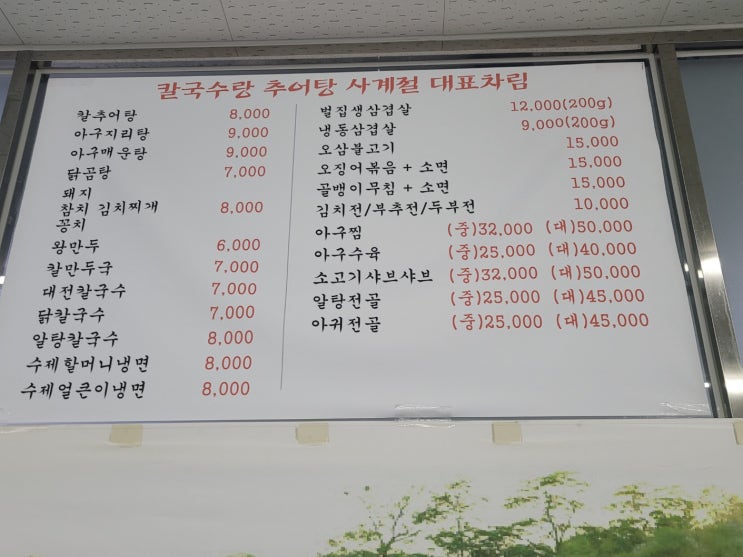 칼국수랑 추어탕 사계절 대표차림
칼추어탕 8,000
아구지리탕 9,000
아구매운탕 9,000
닭곰탕 7,000
돼지
참치 김치찌개 8,000
꽁치
왕만두 6,000
칼만두국 7,000
대전칼국수 7,000
닭칼국수 7,000
알탕칼국수 8,000
수제할머니냉면 8,000
수제얼큰이냉면 8,000
벌집생삼겹살 12,000(200g)
냉동삼겹살 9,000(200g)
오삼불고기 15,000
오징어볶음 + 소면 15,000
골뱅이무침 + 소면 15,000
김치전/부추전/두부전 10,000
아구찜 (중)32,000 (대)50,000
아구수육 (중)25,000 (대)40,000
소고기샤브샤브 (중)32,000 (대)50,000
알탕전골 (중)25,000 (대)45,000
아귀전골 (중)25,000 (대)45,000